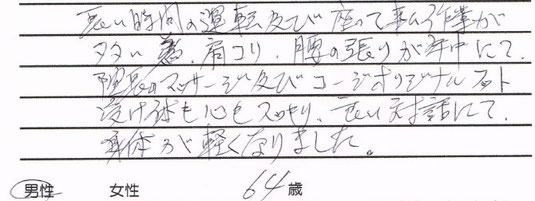 長い時間の運転及び座って行う作業が
多い為、肩コリ、腰の張りが年中にて、
院長のマッサージ及びコージオリジナル
受け体も心もスッキリ、長い対話にて、
身体が軽くなりました。
男性 女性 64歳